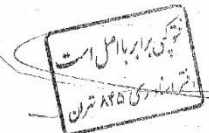 فتوکپی برابر با اصل است
دفتر اسناد رسمی ۸۴۵ تهران